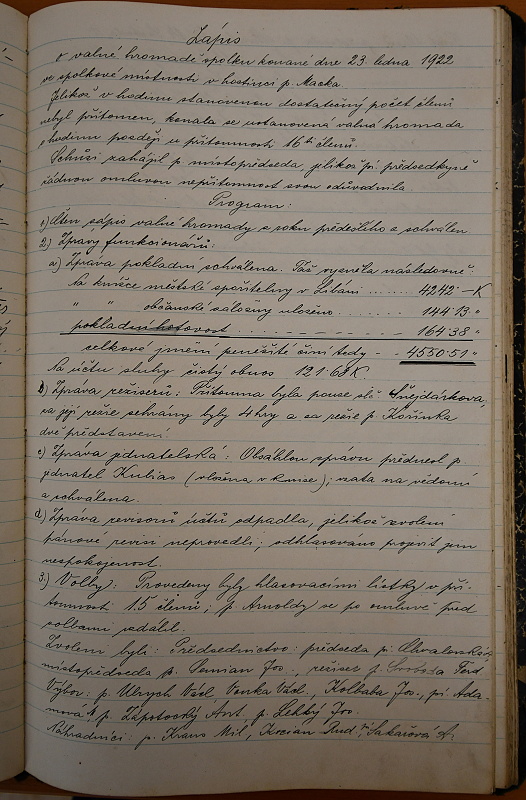 Zápis
o valné hromadě spolku konané dne 23. ledna 1922
ve spolkové místnosti v hostinci p. Macka.
Jelikož v hodinu stanovenou dostatečný počet členů
nebyl přítomen, konala se ustanovená valná hromada
o hodinu později u přítomnosti 16ti členů.
Schůzi zahájil p. místopředseda, jelikož pí. předsedkyně
řádnou omluvou nepřítomnost svou odůvodnila.
Program:
1) Čten zápis valné hromady z roku předešlého a schválen
2) Zprávy funkcionářů:
a) Zpráva pokladní schválena. Táž vyzněla následovně:
Na knížce městské spořitelny v Libáni ...... 4242 — K
" " občanské záložny uloženo ...... 144 13 "
pokladní hotovost ...... 164 38 "
celkové jmění peněžité činí tedy - 4550.51 "
Na účtu sluhy čistý obnos 121.68 K
b) Zpráva režisérů: Přítomna byla pouze slč. Šnejdárkova,
za její režie sehrány byly 4 hry a za režie p. Kořínka
dvě představení.
c) Zpráva jednatelská: Obsáhlou zprávu přednesl p.
jednatel Kulias (vložena v knize); vzata na vědomí
a schválena.
d) Zpráva revisorů účtů odpadla, jelikož zvolení
pánové revisi neprovedli; odhlasováno projevit jim
nespokojenost.
3.) Volby: Provedeny byly hlasovacími lístky v pří-
tomnosti 15 členů; p. Arnoldy se po omluvě před
volbami vzdálil.
Zvoleni byli: Předsednictvo: předseda pí.
místopředseda p. Semian Jos., režiser p. Svoboda Ferd.
Výbor: p. Ulrych Václ. Vonka Václ., Kolbaba Jos., pí. Ada-
mová, p. Zápotocký Ant. p. Lehký Jos.
Náhradníci: p. Kraus Mil., Kocián Rud.